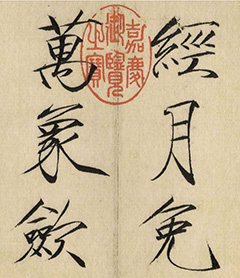 嘉慶
御覽
之寶
經月免
萬象歛